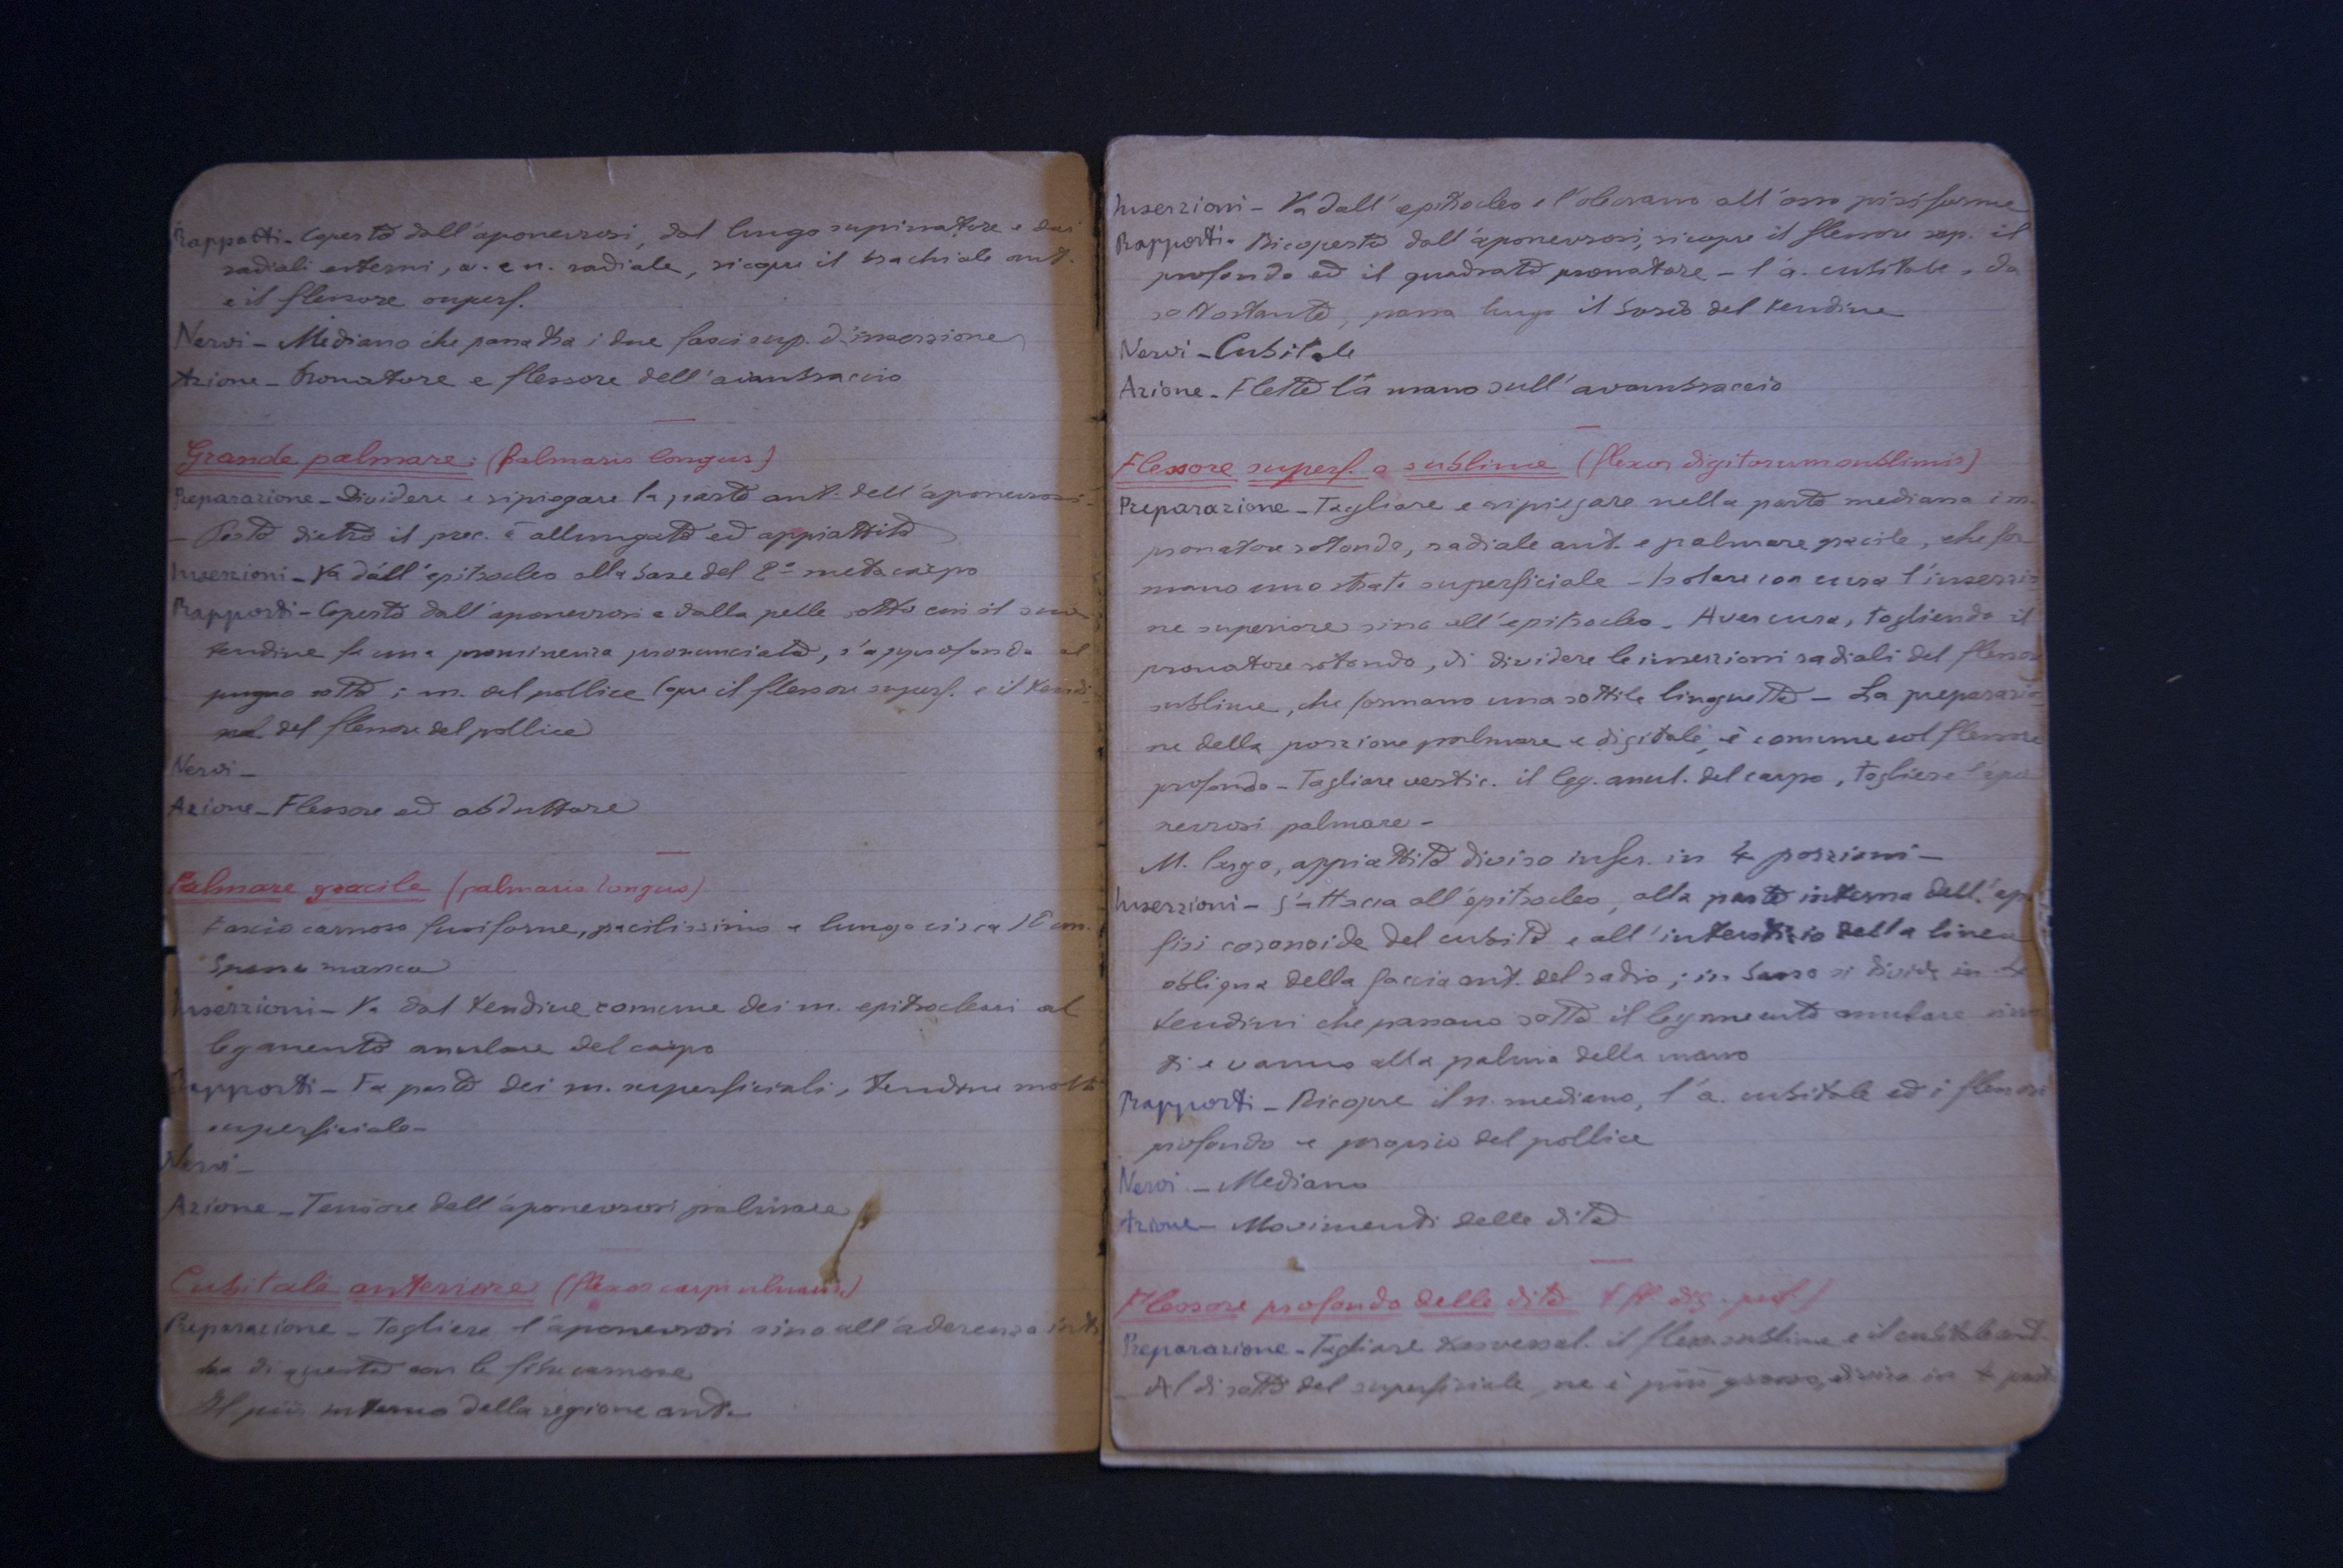 Rapporti - Coperto dall'aponevrosi, dal lungo supinatore e dai
radiali esterni, a. e n. radiale, ricopre il brachiale ant.
e il flessore superf.
Nervi - Mediano che passa tra i due fasci sup. d'inserzione
Azione - Pronatore e flessore dell'avambraccio
Grande palmare: (palmaris longus)
Preparazione - Dividere e ripiegare la parte ant. dell'aponevrosi -
- Posto dietro il prec. è allungato ed appiattito
Inserzioni - Va dall'epitroclea alla base del 2° metacarpo
Rapporti - Coperto dall'aponevrosi e dalla pelle sotto cui il suo
tendine fa una prominenza pronunciata, s'approfonda al
pugno sotto i m. del pollice Copre il flessore superf. e il tendi
ne del flessore del pollice
Nervi -
Azione - Flessore ed abduttore
Palmare gracile (palmaris longus)
Fascio carnoso fusiforme, gracilissimo e lungo circa cm.
Spesso manca
Inserzioni - Va dal tendine comune dei m. epitrocleari al
legamento anulare del carpo
Rapporti - Fa parte dei m. superficiali, tendine molto
superficiale -
Nervi -
Azione - Tensore dell'aponevrosi palmare
Cubitale anteriore (flexor carpi ulnaris)
Preparazione - Togliere l'aponevrosi sino all'aderenza inti
ma di questa con le fibre carnose
Il più interno della regione ant. -
Inserzioni - Va dall'epitroclea e l'olecrano all'osso pisiforme
Rapporti - Ricoperto dall'aponevrosi, ricopre il flessore sup. il
profondo ed il quadrato pronatore - l'a. cubitale, da
sottostante, passa lungo il bordo del tendine
Nervi - Cubitale
Azione - Flette la mano sull'avambraccio
Flessore superf. o sublime (flexor digitorum sublimis)
Preparazione - Tagliare e ripiegare nella parte mediana i m.
pronatore rotondo, radiale ant. e palmare gracile, che for
mano uno strato superficiale - Isolare con cura l'inserzio
ne superiore sino all'epitroclea - Aver cura, togliendo il
pronatore rotondo, di dividere le inserzioni radiali del flessore
sublime, che formano una sottile linguetta - La preparazio
ne della porzione palmare e digitale, è comune col flessore
profondo - Tagliare vertic. il leg. anul. del carpo, togliere l'apo
nevrosi palmare -
M. largo, appiattito diviso infer. in 4 porzioni -
Inserzioni - S'attacca all'epitroclea, alla parte interna dell'apo
fisi coronoide del cubito e all'interstizio della linea
obliqua della faccia ant. del radio; in basso si divide in 4
tendini che passano sotto il legamento anulare
ti e vanno alla palma della mano
Rapporti - Ricopre il n. mediano, l'a. cubitale ed i flessori
profondo e proprio del pollice
Nervi - Mediano
Azione - Movimenti delle dita
Flessore profondo delle dita (fl. dig. prof.)
Preparazione - Tagliare trasversal. il fless. sublime e il cubitale ant.
- Al di sotto del superficiale, ne è più grosso, diviso in 4 parti